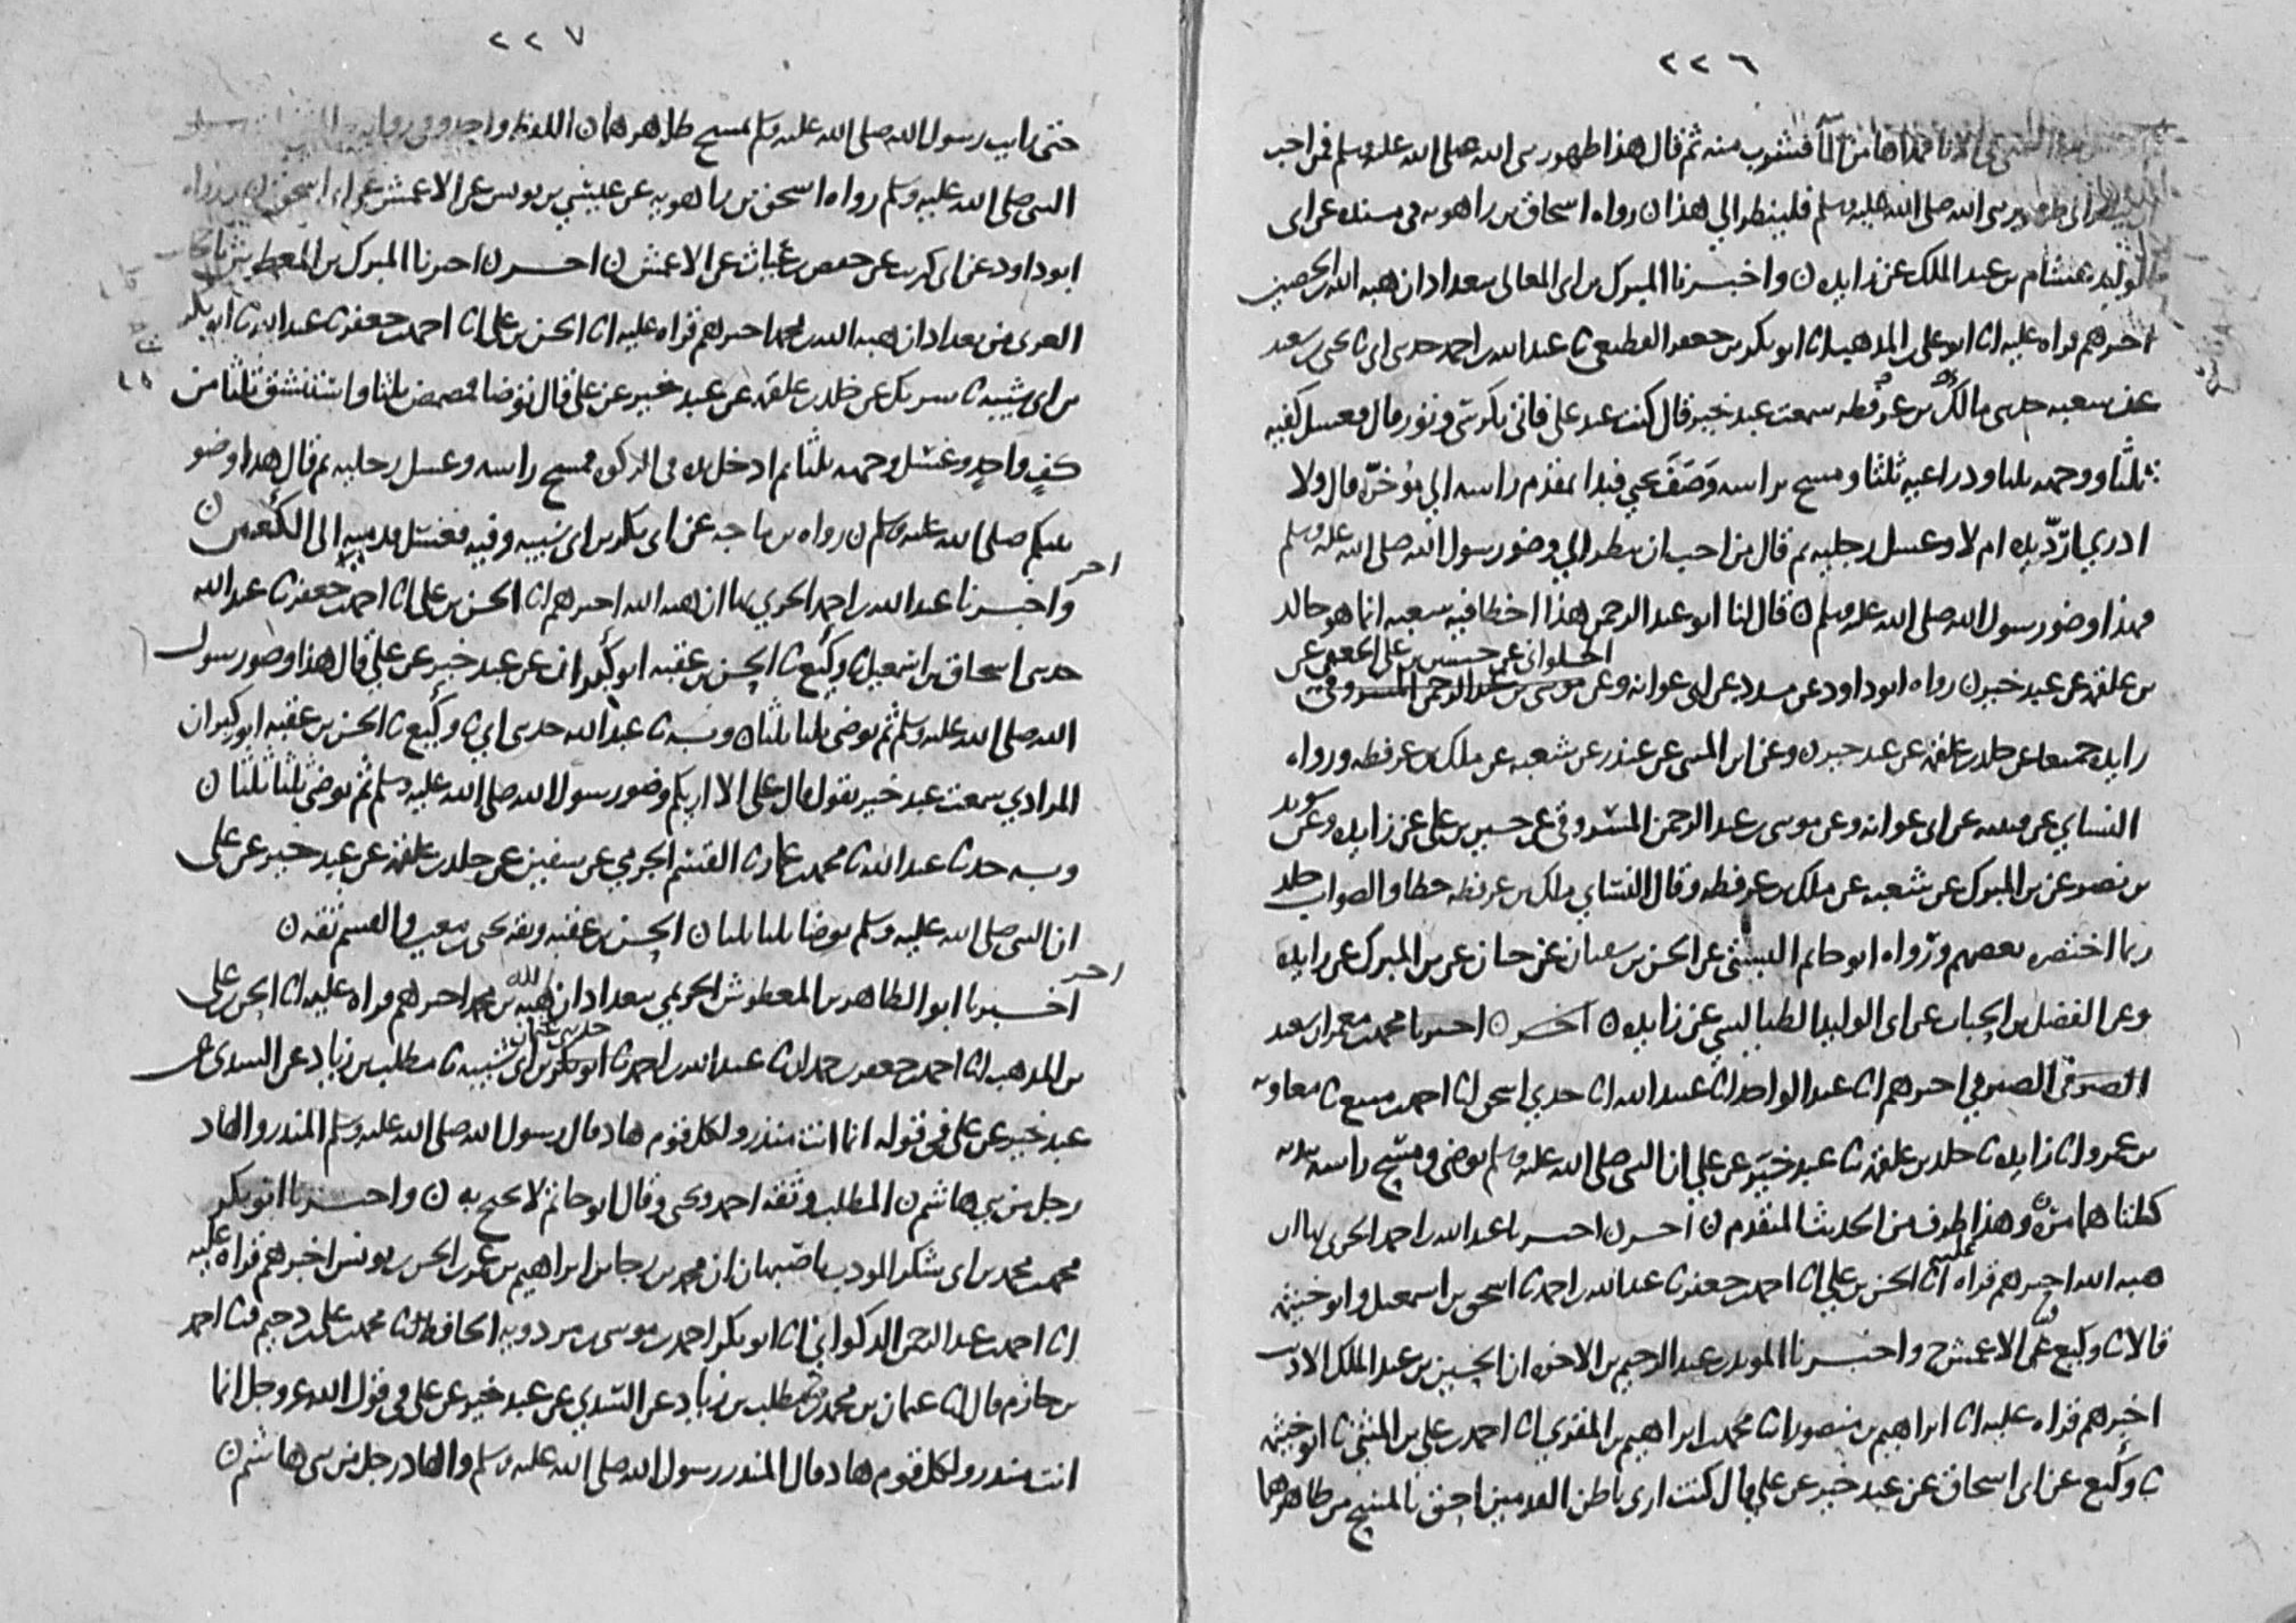 ٢٢٦
الانا فملاها من الما فشرب منه ثم قال هذا طهور نبي الله صلى الله عليه وسلم فمن احب
ان ينظر الى طهور نبي الله صلى الله عليه وسلم فلينظر الى هذا ن رواه اسحاق بن راهويه في مسنده عن ابي
الوليد هشام بن عبد الملك عن زايده ن واخبرنا المبرك بن ابي المعالي ببغداد ان هبه الله بن الحصين
اخبرهم قراه عليه انا ابو علي بن المذهب انا ابو بكر بن جعفر القطيعي نا عبد الله بن احمد حدثني ابي نا يحيى بن سعيد
عن شعبه حدثني مالك بن عرفطه سمعت عبد خير قال كنت عند علي فاتي بكرسي وتور قال فغسل كفيه
ثلثا ووجهه ثلثا وذراعيه ثلثا ومسح براسه وصف يحيى فبدا بمقدم راسه الى موخره قال ولا
ادري ارد يده ام لا وغسل رجليه ثم قال من احب ان ينظر الى وضو رسول الله صلى الله عليه وسلم
فهذا وضو رسول الله صلى الله عليه وسلم ن قال لنا ابو عبد الرحمن هذا اخطا فيه شعبه انما هو خالد
الحلواني عن حسين بن علي الجعفي عن
بن علقمه عن عبد خير ن رواه ابو داود عن مسدد عن ابي عوانه وعن موسى بن عبد الرحمن المسروقي
زايده جميعا عن خلد بن علقمه عن عبد خير ن وعن ابن المثنى عن غندر عن شعبه عن ملك بن عرفطه ورواه
النساي عن قتيبه عن ابي عوانه وعن موسى بن عبد الرحمن المسروقي عن حسين بن علي عن زايده وعن سويد
بن نصر عن بن المبرك عن شعبه عن ملك بن عرفطه وقال النساي ملك بن عرفطه خطا والصواب خلد
ربما اختصره بعضهم ورواه ابو حاتم البستي عن الحسن بن سفيان عن حبان عن بن المبرك عن زايده
وعن الفضل بن الحباب عن ابي الوليد الطيالسي عن زايده ن اخر ن اخبرنا محمد بن معمر ان سعيد
الصيرفي اخبرهم انا عبد الواحد انا عبيد الله انا جدي اسحق انا احمد بن منيع نا معاويه
بن عمرو انا زايده نا خلد بن علقمه نا عبد خير عن علي ان النبي صلى الله عليه وسلم توضى ومسح راسه بيديه
كلتاهما مره وهذا طرف من الحديث المتقدم ن اخر ن اخبرنا عبد الله بن احمد الحربي بها ان
هبه الله اخبرهم قراه عليه انا الحسن بن علي انا احمد بن جعفر نا عبد الله بن احمد نا اسحق بن اسمعيل وابو خيثمه
قالا نا وكيع عن الاعمش ح واخبرنا المويد بن عبد الرحيم بن الاخوه ان الحسين بن عبد الملك الاديب
اخبرهم قراه عليه انا ابراهيم بن منصور انا محمد بن ابراهيم بن المقري انا احمد بن علي بن المثنى نا ابو خيثمه
نا وكيع عن ابي اسحاق عن عبد خير عن علي قال كنت ارى باطن القدمين احق بالمسح من ظاهرهما
٢٢٧
حتى رايت رسول الله صلى الله عليه وسلم يمسح ظاهرهما ن اللفظ واحد وفي روايه
النبي صلى الله عليه وسلم رواه اسحق بن راهويه عن عيسى بن يونس عن الاعمش عن ابي اسحق ن ورواه
ابو داود عن ابي كريب عن حفص بن غياث عن الاعمش ن اخر ن اخبرنا المبرك بن المعطوش
العربي من بغداد ان هبه الله بن محمد اخبرهم قراه عليه انا الحسن بن علي انا احمد بن جعفر نا عبد الله نا ابو بكر
بن ابي شيبه نا شريك عن خلد بن علقمه عن عبد خير عن علي قال توضا فمضمض ثلثا واستنشق ثلثا من
كف واحد وغسل وجهه ثلثا ثم ادخل يده في الركوه فمسح راسه وغسل رجليه ثم قال هذا وضو
نبيكم صلى الله عليه وسلم ن رواه بن ماجه عن ابي بكر بن ابي شيبه وفيه فغسل قدميه الى الكعبين ن
اخر
واخبرنا عبد الله بن احمد الحربي بها ان هبه الله اخبرهم انا الحسن بن علي انا احمد بن جعفر نا عبد الله
حدثني اسحاق بن اسمعيل نا وكيع نا الحسن بن عقبه ابو كيران عن عبد خير عن علي قال هذا وضو رسول
الله صلى الله عليه وسلم ثم توضى ثلثا ثلثا ن وبه نا عبد الله حدثني ابي نا وكيع نا الحسن بن عقبه ابو كيران
المرادي سمعت عبد خير يقول قال علي الا اريكم وضو رسول الله صلى الله عليه وسلم ثم توضى ثلثا ثلثا ن
وبه حدثنا عبد الله نا محمد بن عمار نا القسم الجرمي عن سفين عن خلد بن علقمه عن عبد خير عن علي
ان النبي صلى الله عليه وسلم توضا ثلثا ثلثا ن الحسن بن عقبه وثقه يحيى بن معين والقسم ثقه ن
اخر
اخبرنا ابو الطاهر بن المعطوش الحريمي ببغداد ان هبه الله بن محمد اخبرهم قراه عليه انا الحسن بن علي
بن المذهب انا احمد بن جعفر بن حمدان نا عبد الله بن احمد نا ابو بكر بن ابي شيبه نا مطلب بن زياد عن السدي عن
عبد خير عن علي في قوله انما انت منذر ولكل قوم هاد قال رسول الله صلى الله عليه وسلم المنذر والهاد
رجل من بني هاشم ن المطلب وثقه احمد ويحيى وقال ابو حاتم لا يحتج به ن واخبرنا ابو بكر
محمد بن محمد بن ابي شكر المودب باصبهان ان محمد بن رجا بن ابراهيم بن عمر بن الحسن بن يونس اخبرهم قراه عليه
انا احمد بن عبد الرحمن الذكواني انا ابو بكر احمد بن موسى بن مردويه الحافظ نا محمد بن علي بن دحيم نا احمد
بن حازم قال نا عثمان بن محمد نا مطلب بن زياد عن السدي عن عبد خير عن علي في قول الله عز وجل انما
انت منذر ولكل قوم هاد قال المنذر رسول الله صلى الله عليه وسلم والهاد رجل من بني هاشم ن